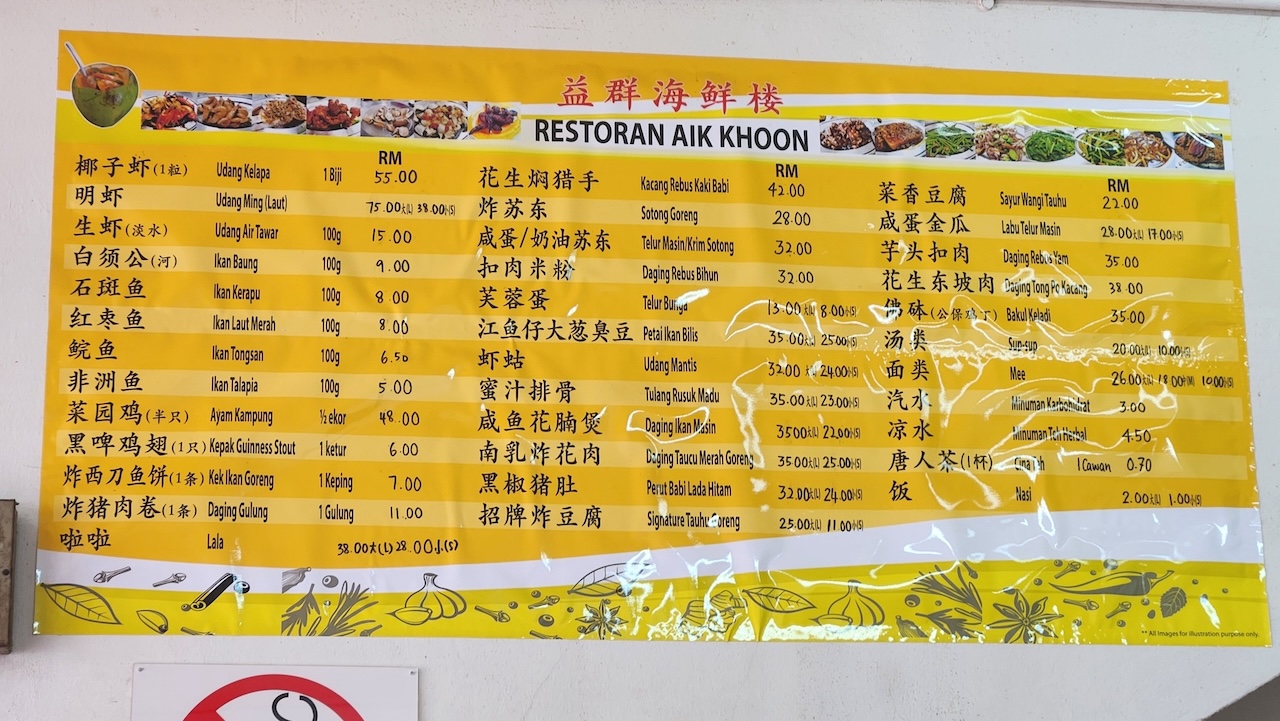 益群海鲜楼
RESTORAN AIK KHOON
RM
椰子虾(1粒) Udang Kelapa 1 Biji 55.00
明虾 Udang Ming (Laut) 75.00大(L) 38.00小(S)
生虾(淡水) Udang Air Tawar 100g 15.00
白须公(河) Ikan Baung 100g 9.00
石斑鱼 Ikan Kerapu 100g 8.00
红枣鱼 Ikan Laut Merah 100g 8.00
鲩鱼 Ikan Tongsan 100g 6.50
非洲鱼 Ikan Talapia 100g 5.00
菜园鸡(半只) Ayam Kampung ½ ekor 48.00
黑啤鸡翅(1只) Kepak Guinness Stout 1 ketur 6.00
炸西刀鱼饼(1条) Kek Ikan Goreng 1 Keping 7.00
炸猪肉卷(1条) Daging Gulung 1 Gulung 11.00
啦啦 Lala 38.00大(L) 28.00小(S)
RM
花生焖猎手 Kacang Rebus Kaki Babi 42.00
炸苏东 Sotong Goreng 28.00
咸蛋/奶油苏东 Telur Masin/Krim Sotong 32.00
扣肉米粉 Daging Rebus Bihun 32.00
芙蓉蛋 Telur Bunga 13.00大(L) 8.00小(S)
江鱼仔大葱臭豆 Petai Ikan Bilis 35.00大(L) 25.00小(S)
虾蛄 Udang Mantis 32.00大(L) 24.00小(S)
蜜汁排骨 Tulang Rusuk Madu 35.00大(L) 23.00小(S)
咸鱼花腩煲 Daging Ikan Masin 35.00大(L) 22.00小(S)
南乳炸花肉 Daging Taucu Merah Goreng 35.00大(L) 25.00小(S)
黑椒猪肚 Perut Babi Lada Hitam 32.00大(L) 24.00小(S)
招牌炸豆腐 Signature Tauhu Goreng 25.00大(L) 11.00小(S)
RM
菜香豆腐 Sayur Wangi Tauhu 22.00
咸蛋金瓜 Labu Telur Masin 28.00大(L) 17.00小(S)
芋头扣肉 Daging Rebus Yam 35.00
花生东坡肉 Daging Tong Po Kacang 38.00
佛砵(公保鸡丁) Bakul Keladi 35.00
汤类 Sup-sup 20.00大(L) 10.00小(S)
面类 Mee 26.00大(L) 18.00中(M) 10.00小(S)
汽水 Minuman Karbohidrat 3.00
凉水 Minuman Teh Herbal 4.50
唐人茶(1杯) Cina Teh 1 Cawan 0.70
饭 Nasi 2.00大(L) 1.00小(S)
** All Images for illustration purpose only.